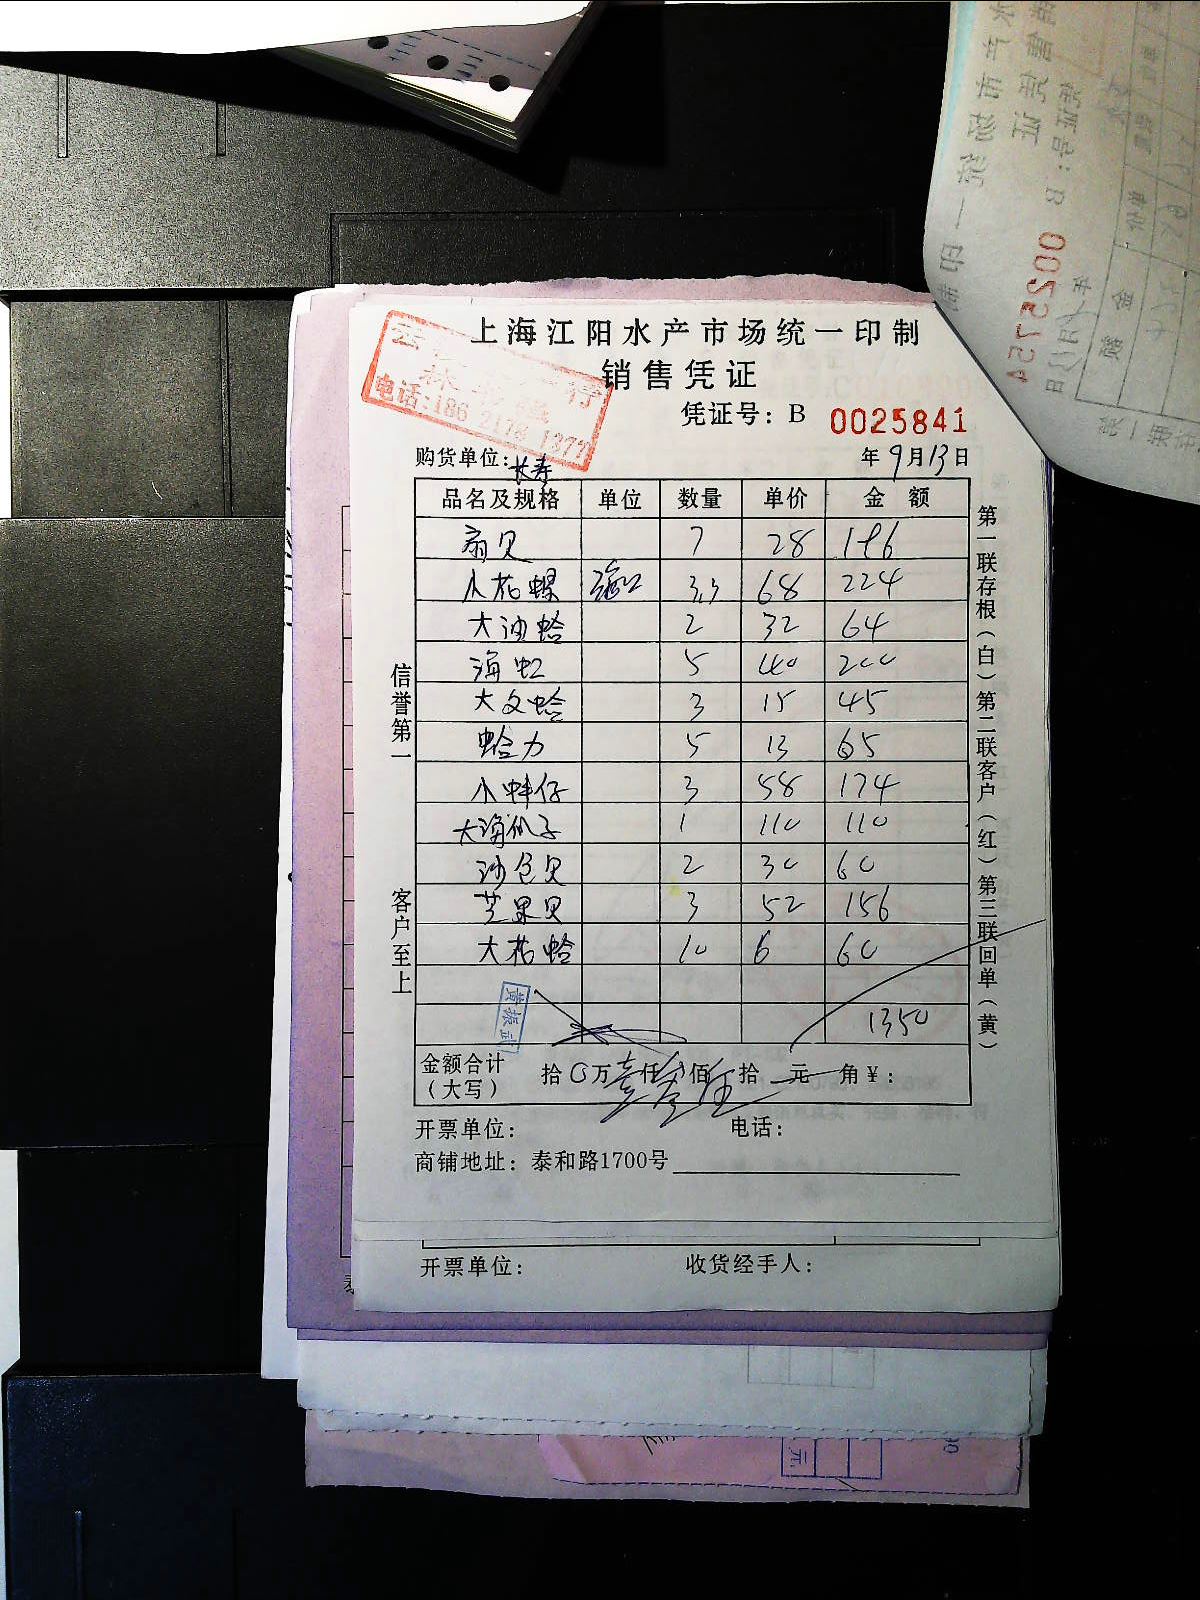 上海江阳水产市场统一印制
销售凭证
电话:186 2178 1377
凭证号: B 0025841
购货单位: 长寿 年 9月13日
品名及规格 单位 数量 单价 金 额
扇贝 7 28 196
小花螺 3.3 68 224
大油蛤 2 32 64
海虹 5 40 200
大文蛤 3 15 45
蛤力 5 13 65
小蚌仔 3 58 174
大海瓜子 1 110 110
沙包贝 2 30 60
芒果贝 3 52 156
大花蛤 10 6 60
1350
黄振武
金额合计
(大写) 拾 万 仟 佰 拾 元 角 ¥:
开票单位: 电话:
商铺地址: 泰和路1700号
信誉第一 客户至上
第一联存根(白)第二联客户(红)第三联回单(黄)
开票单位: 收货经手人: